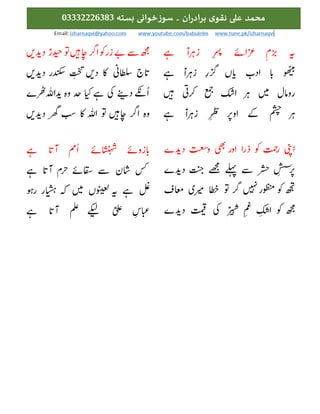 محمد علی نقوی برادران ۔ سوزخوانی بستہ 03332226383
Email: izharnaqvi@yahoo.com www.youtube.com/babulelm www.tune.pk/izharnaqvi
یہ بزمِ عزائے پسرِ زہراؑ ہے
بیٹھو با ادب یاں گزرِ زہراؑ ہے
رومال میں ہر اشک جمع کرتی ہیں
ہر چشم کے اوپر نظرِ زہراؑ ہے
مجھ سے بے زر کو اگر چاہیں تو حیدرؑ دیدیں
تاج سلطانی کا دیں تختِ سکندر دیدیں
اُنکے دینے کی ہے کیا حد وہ یداللہ ٹھرے
وہ اگر چاہیں تو اللہ کا سب گھر دیدیں
اپنی رحمت کو ذرا اور بھی وسعت دیدے
پرسشِ حشر سے پہلے مجھے جنت دیدے
تجھ کو منظور نہیں گر تو خطا میری معاف
مجھ کو اشکِ غمِ شبیرؑ کی قیمت دیدے
بازوئے شہنشائے اُمم آتا ہے
کس شان سے سقائے حرم آتا ہے
غل ہے یہ لعینوں میں کہ ہشیار رہو
عباسِ علیؑ لیکے علم آتا ہے